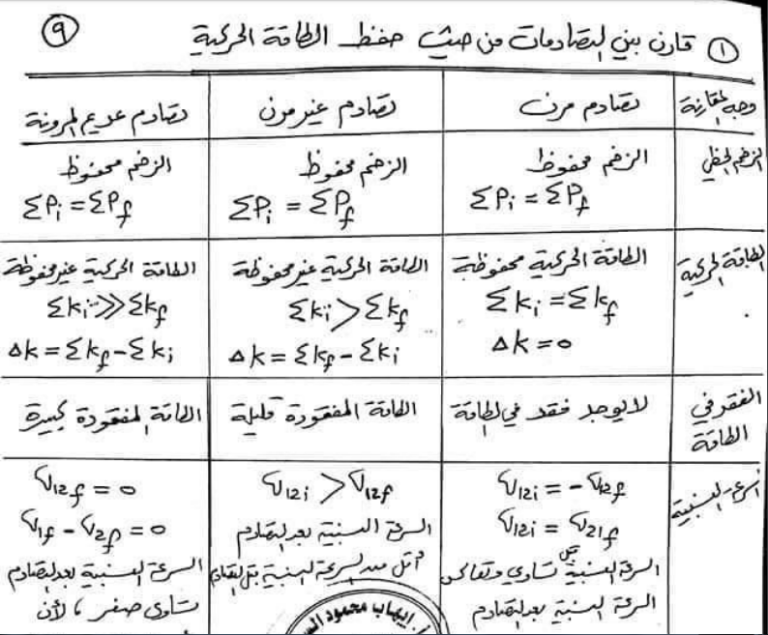 ٩
① قارن بين التصادمات من حيث حفظ الطاقة الحركية
وجه المقارنة
تصادم مرن
تصادم غير مرن
تصادم عديم المرونة
الزخم الخطي
الزخم محفوظ
ΣPi = ΣPf
الزخم محفوظ
ΣPi = ΣPf
الزخم محفوظ
ΣPi = ΣPf
الطاقة الحركية
الطاقة الحركية محفوظة
Σki = Σkf
Δk = 0
الطاقة الحركية غير محفوظة
Σki > Σkf
Δk = Σkf - Σki
الطاقة الحركية غير محفوظة
Σki >> Σkf
Δk = Σkf - Σki
الفقد في
الطاقة
لا يوجد فقد في الطاقة
الطاقة المفقودة قليلة
الطاقة المفقودة كبيرة
السرعة النسبية
v12i = -v12f
v12i = v21f
السرعة النسبية قبل تساوي وتعاكس
السرعة النسبية بعد التصادم
v12i > v12f
السرعة النسبية بعد التصادم
أقل من السرعة النسبية قبل التصادم
v12f = 0
v1f - v2f = 0
السرعة النسبية بعد التصادم
تساوي صفر، لأن
أ. ايهاب محمود